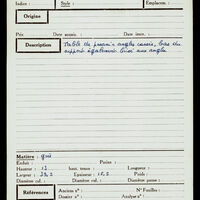 Indice : Style : Emplacem. :
Origine
Prix Date acquis. : Date inscr. :
Description Table de prani à angles cassés, bas du
support également brisé aux angles
Matière : grès
Enduit : Poids :
Hauteur : 13 haut. tenon : Longueur :
Largeur : 39,5 Epaisseur : 12,5 Profondeur :
Diamètre col. : Diamètre panse :
Références Anciens n° : N° Fouilles :
Dossier n° : Analyse n° :